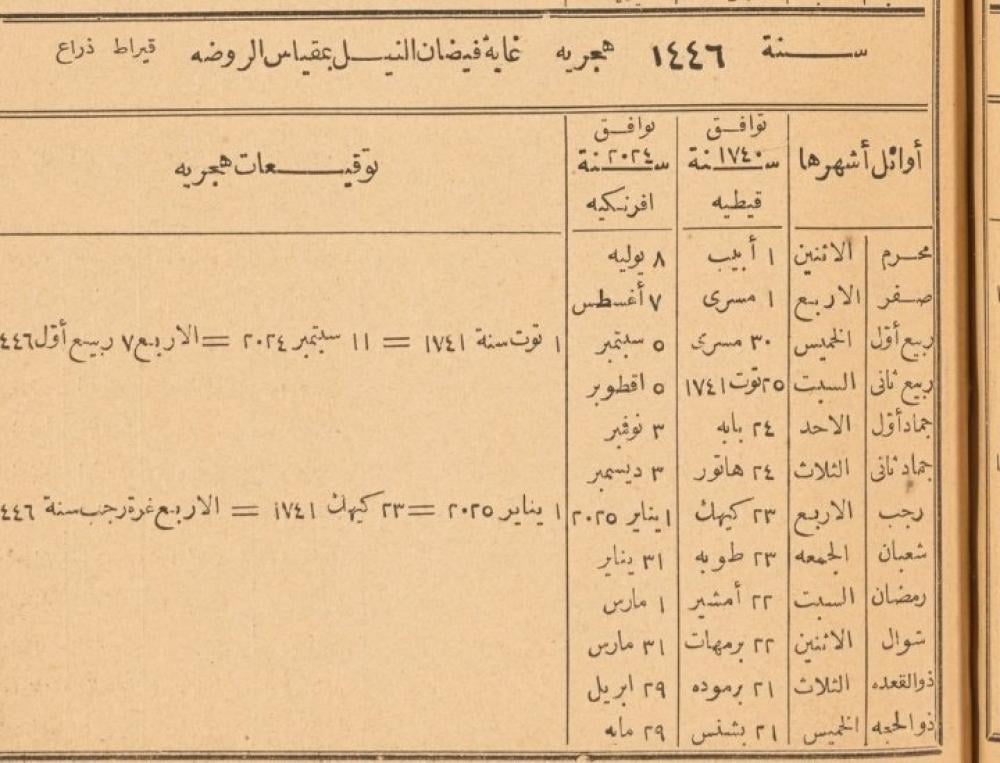 سنة ١٤٤٦ هجريه غاية فيضان النيل بمقياس الروضه قيراط ذراع
أوائل أشهرها توافق سنة ١٧٤٠ قبطيه توافق سنة ٢٠٢٤ افرنكيه توقيعات هجريه
محرم الاثنين ١ أبيب ٨ يوليه
صفر الاربع ١ مسرى ٧ أغسطس
ربيع أول الخميس ٣٠ مسرى ٥ سبتمبر ١ توت سنة ١٧٤١ = ١١ سبتمبر ٢٠٢٤ = الاربع ٧ ربيع أول ٤٤٦
ربيع ثانى السبت ٢٥ توت ١٧٤١ ٥ اقطوبر
جماد أول الاحد ٢٤ بابه ٣ نوفمبر
جماد ثانى الثلاث ٢٤ هاتور ٣ ديسمبر
رجب الاربع ٢٣ كيهك ١ يناير ٢٠٢٥ ١ يناير ٢٠٢٥ = ٢٣ كيهك ١٧٤١ = الاربع غرة رجب سنة ٤٤٦
شعبان الجمعه ٢٣ طوبه ٣١ يناير
رمضان السبت ٢٢ أمشير ١ مارس
شوال الاثنين ٢٢ برمهات ٣١ مارس
ذو القعده الثلاث ٢١ برموده ٢٩ ابريل
ذو الحجه الخميس ٢١ بشنس ٢٩ مايه